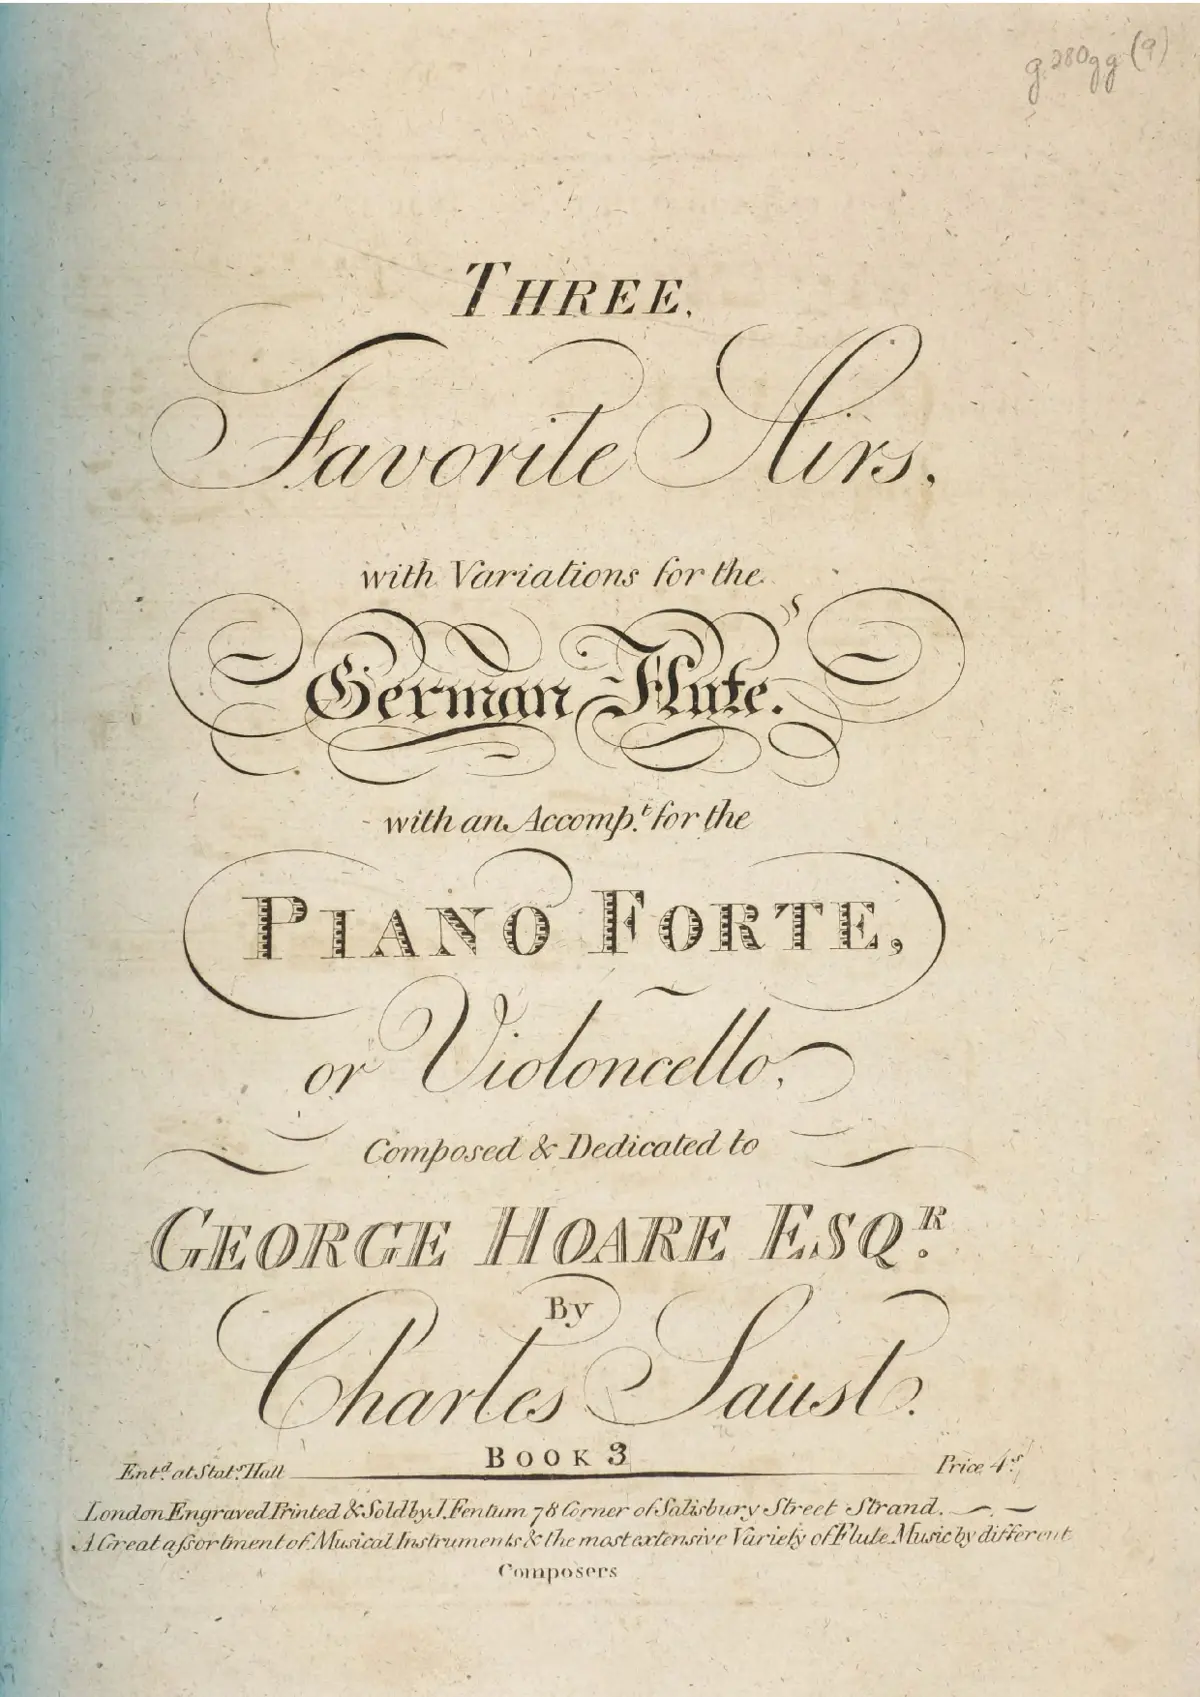 g.280gg(9)
THREE.
Favorite Airs,
with Variations for the
German Flute.
with an Accomp.t for the
PIANO FORTE,
or Violoncello,
Composed & Dedicated to
GEORGE HOARE ESQ.R
By
Charles Saust.
BOOK 3
Ent.d at Stat.s Hall
Price 4.s
London Engraved Printed & Sold by J. Fentum 78 Corner of Salisbury Street Strand.
A Great assortment of Musical Instruments & the most extensive Variety of Flute Music by different
Composers